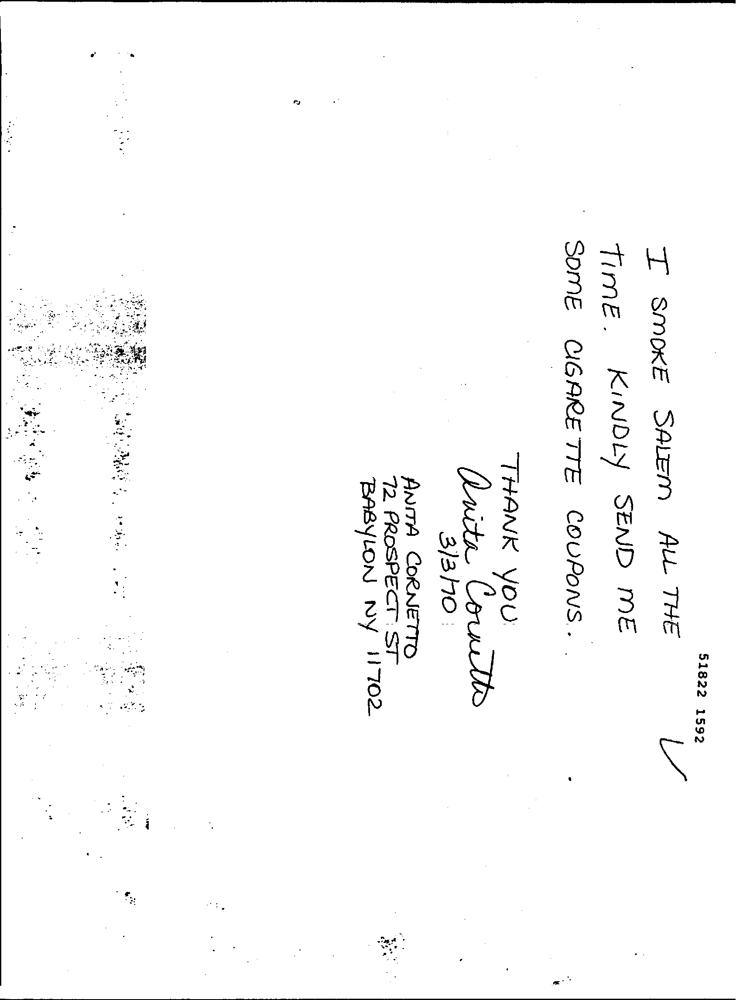 51822 1592
I SMOKE SALEM ALL THE
TIME. KINDLY SEND ME
SOME CIGARETTE COUPONS.
THANK YOU
Anita Cornetto
3/3/70
ANITA CORNETTO
72 PROSPECT ST
BABYLON NY 11702